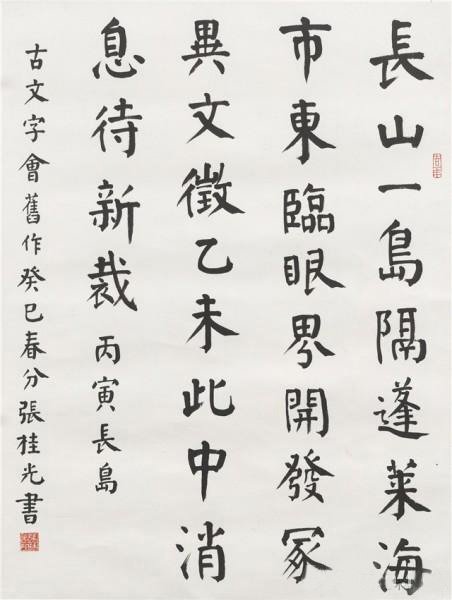 長山一島隔蓬萊海
市東臨眼界開發冢
異文徵乙未此中消
息待新裁丙寅長島
古文字會舊作癸巳春分張桂光書